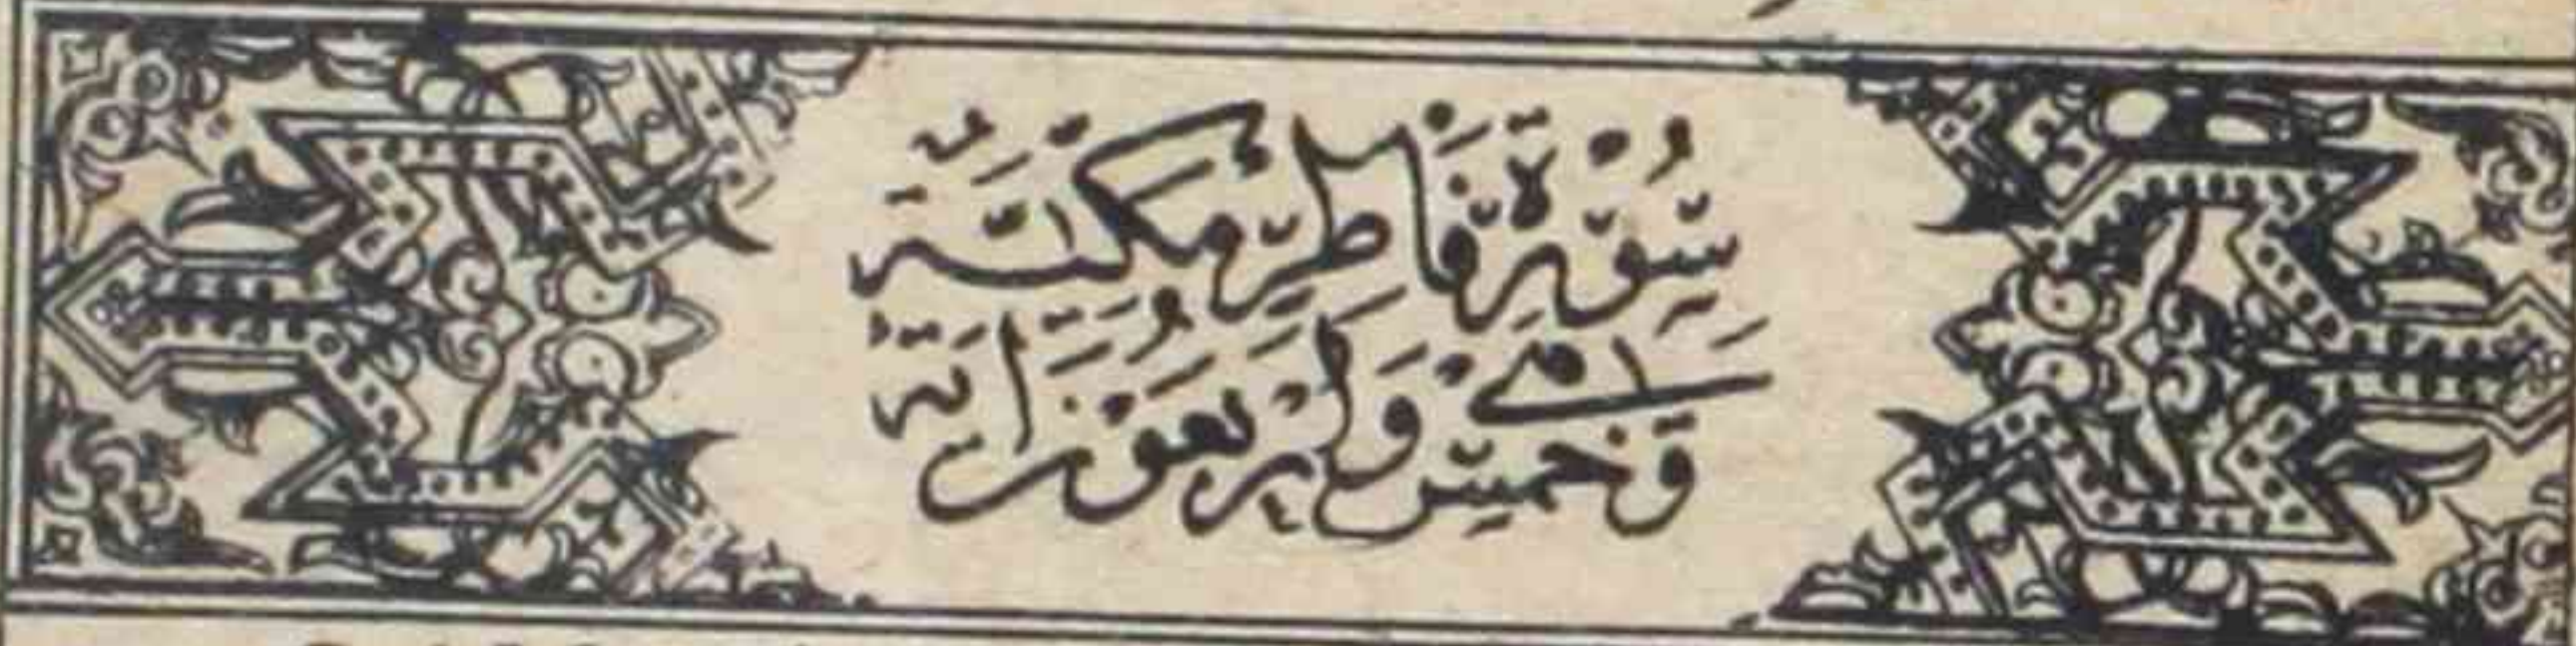 سورة فاطر مكية
وهي خمس واربعون اية